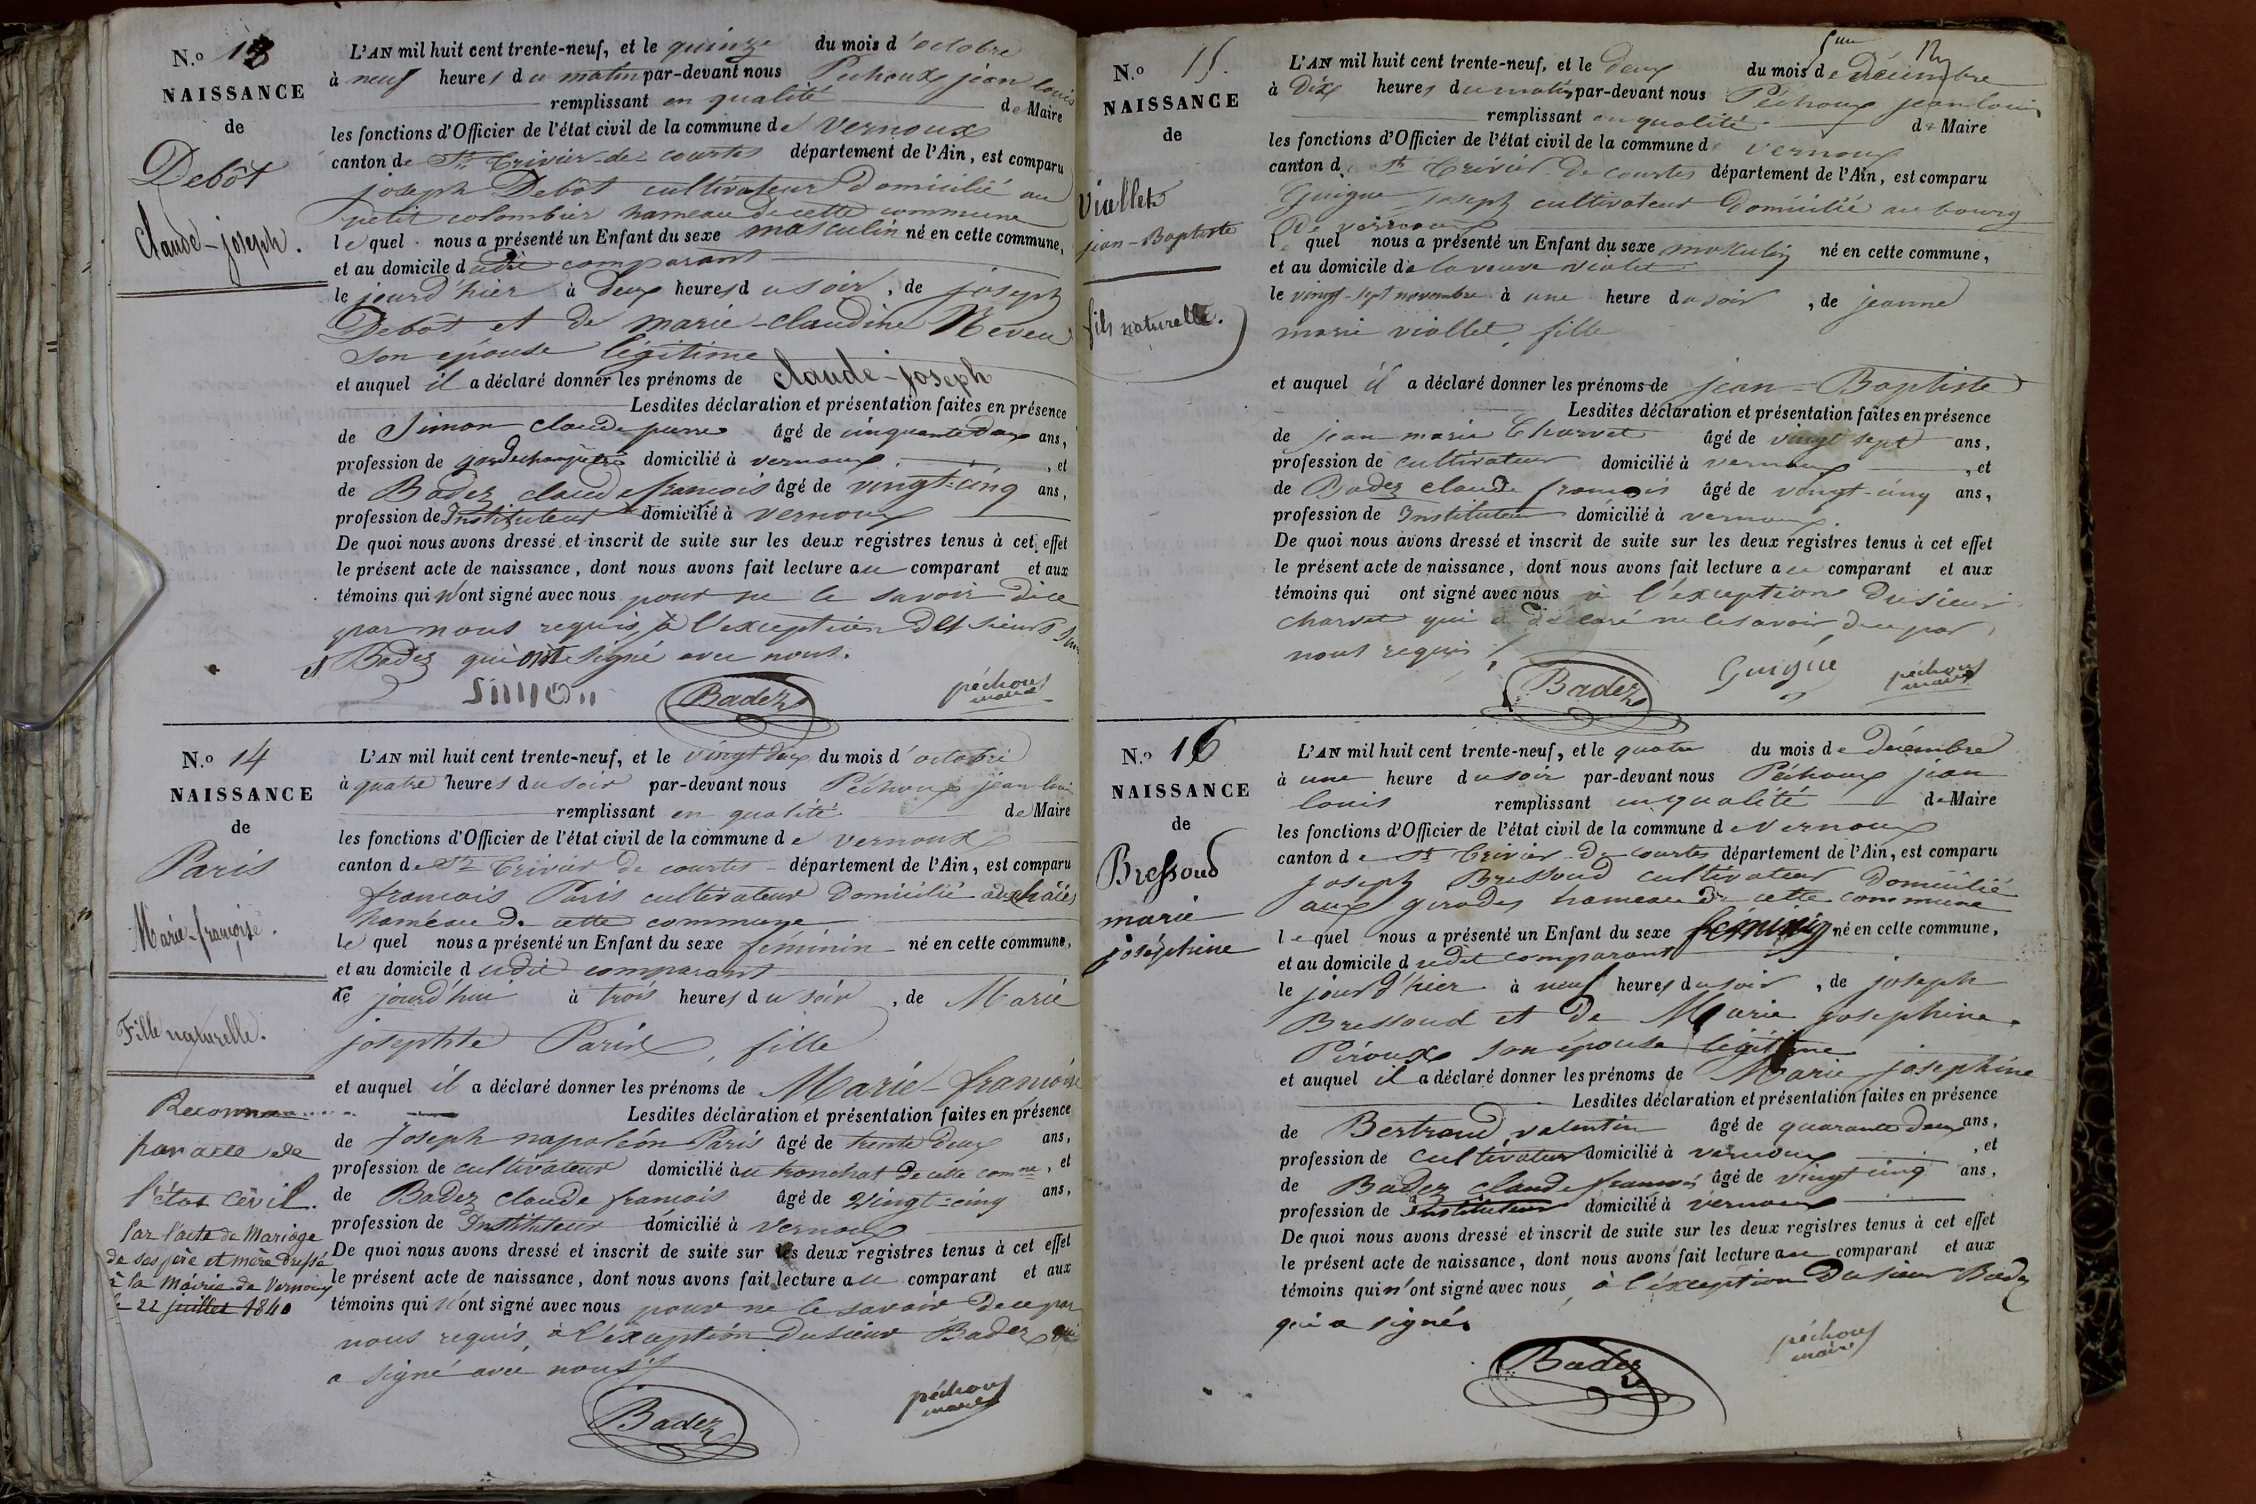 N.º 13
NAISSANCE
de
Debôt
Claude-joseph.
L'AN mil huit cent trente-neuf, et le quinze du mois d'octobre
à neuf heures du matin par-devant nous Péchoux jean louis
remplissant en qualité de Maire
les fonctions d'Officier de l'état civil de la commune de Vernoux
canton de St Trivier-de-courtes département de l'Ain, est comparu
joseph Debôt cultivateur Domicilié au
petit colombier hameau de cette commune
lequel nous a présenté un Enfant du sexe masculin né en cette commune,
et au domicile dudit comparant
le jourd'hier à deux heures du soir, de joseph
Debôt et de marie-claudine Neveu
son épouse légitime
et auquel il a déclaré donner les prénoms de claude-joseph
Lesdites déclaration et présentation faites en présence
de Simon claude pierre âgé de cinquante deux ans,
profession de gardechampêtre domicilié à vernoux, et
de Badez claude françois âgé de vingt-cinq ans,
profession de Instituteur domicilié à vernoux
De quoi nous avons dressé et inscrit de suite sur les deux registres tenus à cet effet
le présent acte de naissance, dont nous avons fait lecture au comparant et aux
témoins qui n'ont signé avec nous pour ne le savoir de ce
par nous requis, à l'exception des sieurs Simon
et Badez qui ont signé avec nous.
Simon Badez péchoux maire
N.º 14
NAISSANCE
de
Paris
Marie-françoise.
Fille naturelle.
par acte de
l'état civil.
Par l'acte de Mariage
de ses père et mère dressé
à la Mairie de Vernoux
le 22 juillet 1840
L'AN mil huit cent trente-neuf, et le vingt deux du mois d'octobre
à quatre heures du soir par-devant nous Péchoux jean louis
remplissant en qualité de Maire
les fonctions d'Officier de l'état civil de la commune de vernoux
canton de St Trivier de courtes département de l'Ain, est comparu
françois Paris cultivateur Domicilié
hameau de cette commune
lequel nous a présenté un Enfant du sexe féminin né en cette commune,
et au domicile dudit comparant
le jourd'hui à trois heures du soir, de Marie
josephte Paris, fille
et auquel il a déclaré donner les prénoms de Marie-françoise
Lesdites déclaration et présentation faites en présence
de Joseph napoléon Paris âgé de trente deux ans,
profession de cultivateur domicilié au tronchat de cette comne, et
de Badez claude françois âgé de vingt-cinq ans,
profession de Instituteur domicilié à vernoux
De quoi nous avons dressé et inscrit de suite sur les deux registres tenus à cet effet
le présent acte de naissance, dont nous avons fait lecture au comparant et aux
témoins qui n'ont signé avec nous pour ne le savoir de ce par
nous requis, à l'exception du sieur Badez qui
a signé avec nous
Badez péchoux maire
N.º 15.
NAISSANCE
de
Viollet
jean-Baptiste
fils naturelle.
L'AN mil huit cent trente-neuf, et le deux du mois de Décembre
à Dix heures du matin par-devant nous Péchoux jean louis
remplissant en qualité de Maire
les fonctions d'Officier de l'état civil de la commune de vernoux
canton de St Trivier-de-courtes département de l'Ain, est comparu
Guigue joseph cultivateur Domicilié au bourg
De vernoux
lequel nous a présenté un Enfant du sexe maskulin né en cette commune,
et au domicile de la veuve violet
le vingt-sept novembre à une heure du soir, de jeanne
marie viollet, fille
et auquel il a déclaré donner les prénoms de jean-Baptiste
Lesdites déclaration et présentation faites en présence
de jean marie Charvet âgé de vingt sept ans,
profession de cultivateur domicilié à vernoux, et
de Badez claude françois âgé de vingt-cinq ans,
profession de Instituteur domicilié à vernoux.
De quoi nous avons dressé et inscrit de suite sur les deux registres tenus à cet effet
le présent acte de naissance, dont nous avons fait lecture au comparant et aux
témoins qui ont signé avec nous à l'exception du sieur
charvet qui a déclaré ne le savoir, de ce par
nous requis
Badez Guigue péchoux maire
N.º 16
NAISSANCE
de
Bressoud
marie
joséphine
L'AN mil huit cent trente-neuf, et le quatre du mois de Décembre
à une heure du soir par-devant nous Péchoux jean
louis remplissant en qualité de Maire
les fonctions d'Officier de l'état civil de la commune de vernoux
canton de St Trivier-de-courtes département de l'Ain, est comparu
joseph Bressoud cultivateur Domicilié
aux girodes hameau de cette commune
lequel nous a présenté un Enfant du sexe féminin né en cette commune,
et au domicile dudit comparant
le jourd'hier à neuf heures du soir, de joseph
Bressoud et de Marie josephine
Piroux son épouse légitime
et auquel il a déclaré donner les prénoms de Marie josephine
Lesdites déclaration et présentation faites en présence
de Bertrand valentin âgé de quarante deux ans,
profession de cultivateur domicilié à vernoux, et
de Badez claude françois âgé de vingt cinq ans,
profession de instituteur domicilié à vernoux
De quoi nous avons dressé et inscrit de suite sur les deux registres tenus à cet effet
le présent acte de naissance, dont nous avons fait lecture au comparant et aux
témoins qui n'ont signé avec nous, à l'exception du sieur Badez
qui a signé.
Badez péchoux maire